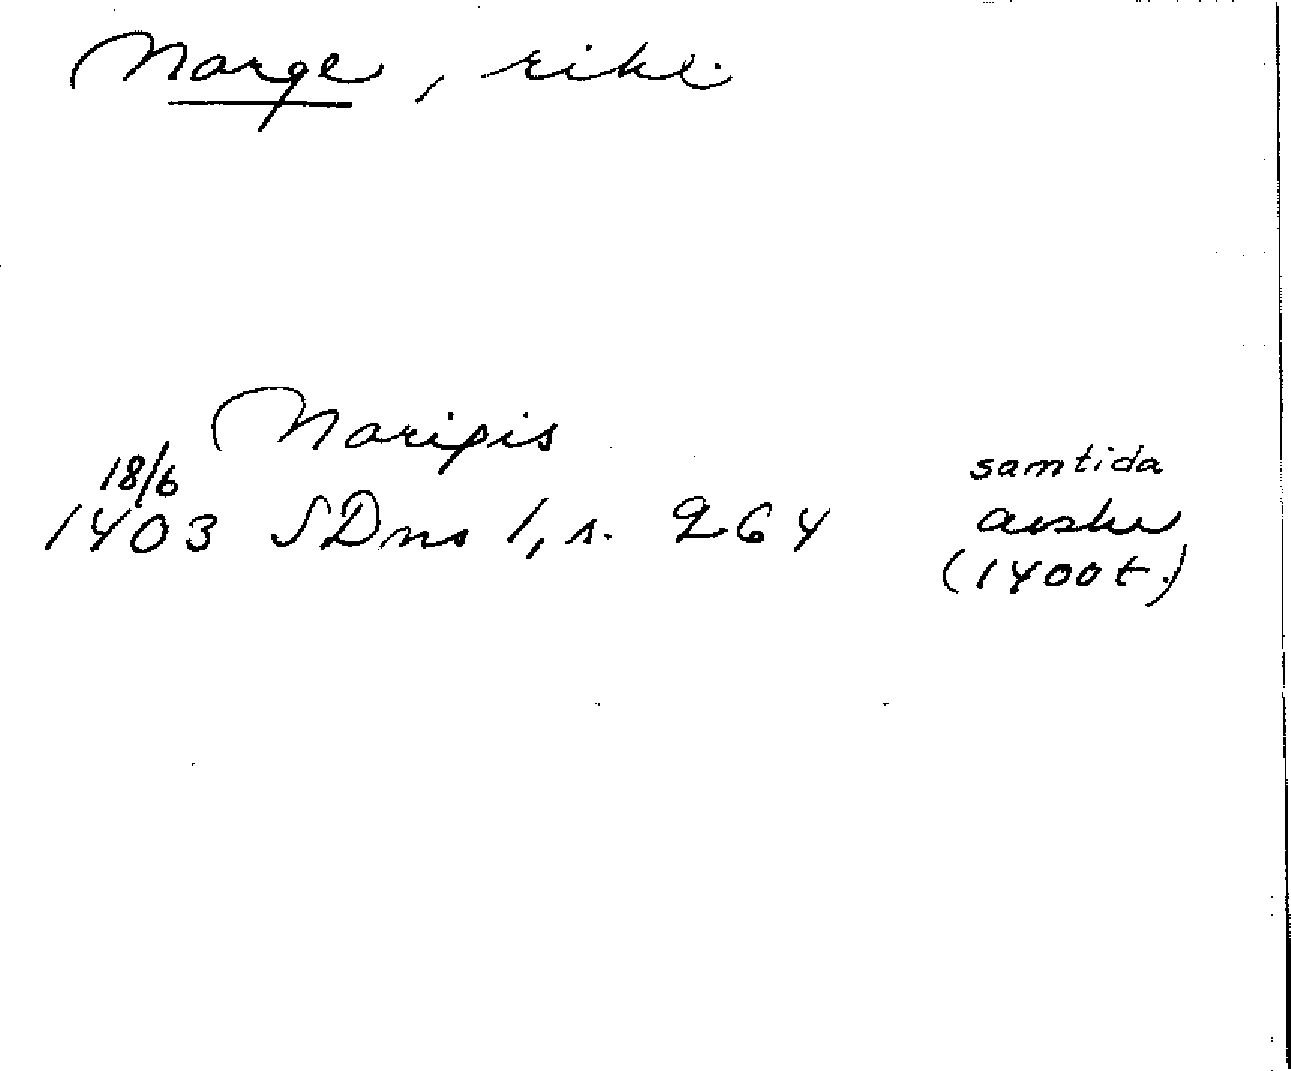 Norge, rike.
Noripis
18/6
samtida
1403 SDns 1, s. 264
avskr
(1400t.)